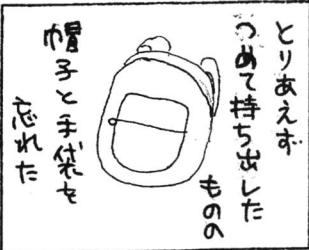 とりあえず
つめて持ち出した
ものの
帽子と手袋を
忘れた